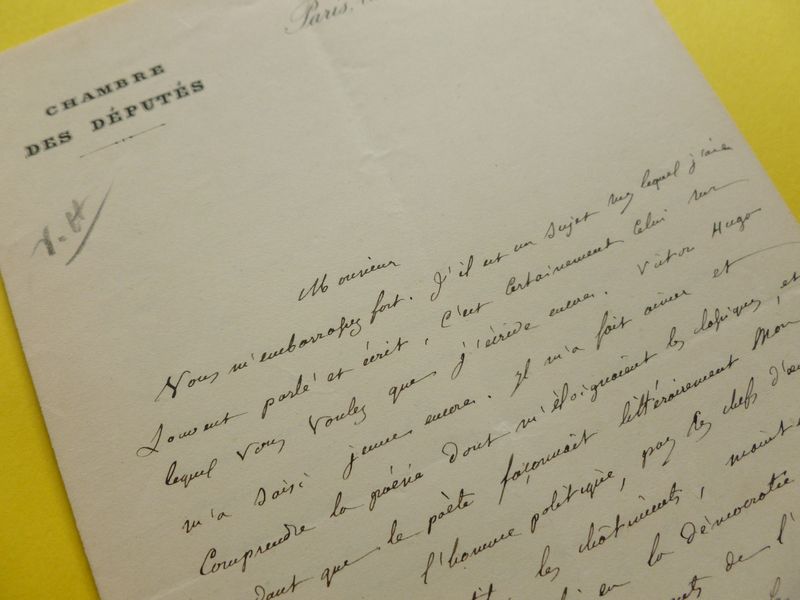 Paris,
CHAMBRE
DES DÉPUTÉS
V.H
Monsieur
Vous m'embarrassez fort. S'il est un sujet sur lequel j'aie
souvent parlé et écrit, c'est certainement celui sur
lequel vous voulez que j'écrive encore. Victor Hugo
m'a saisi jeune encore. Il m'a fait aimer et
comprendre la poésie dont m'éloignaient les classiques, et
dant que le poète façonnait littérairement mon
l'homme politique, par les chefs d'œu
les châtiments, maint
en la démocratie
de l'